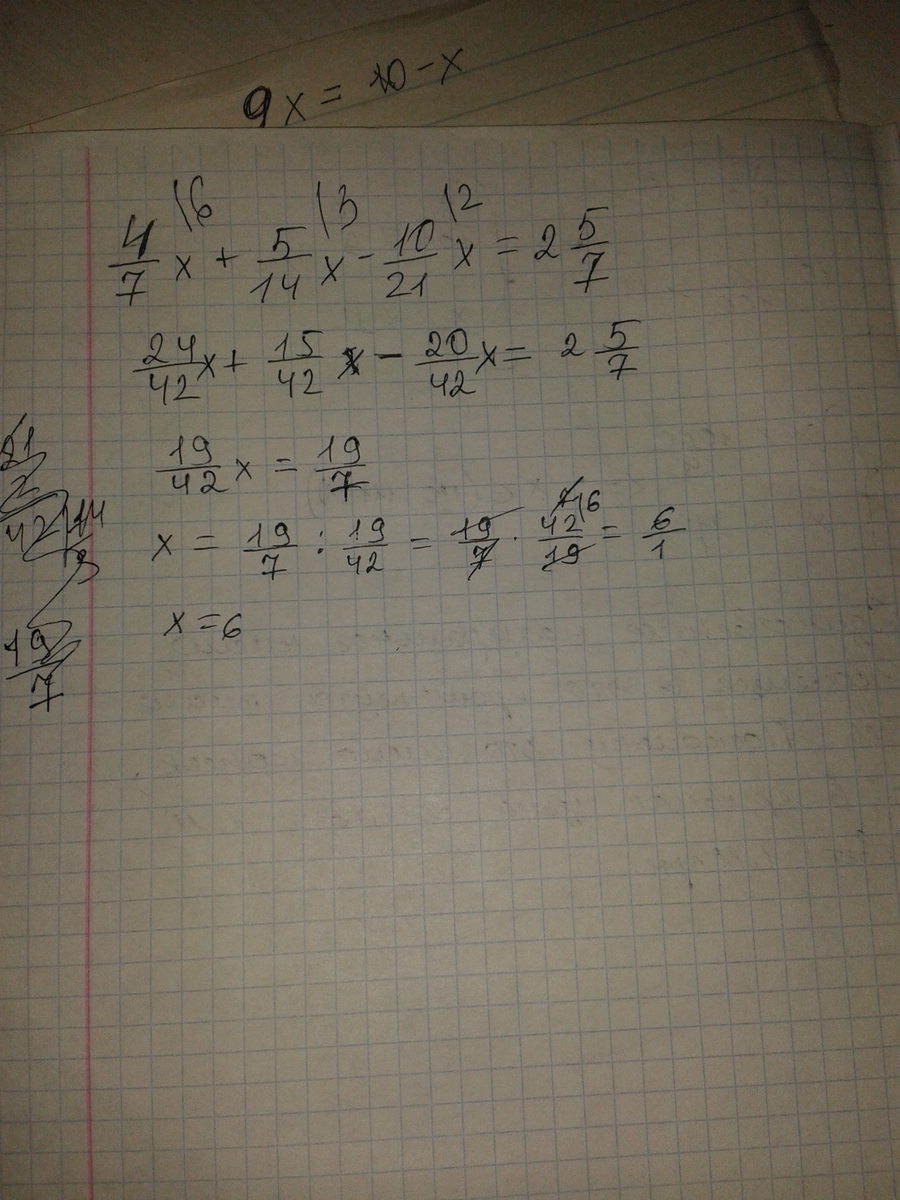 9x = 10 - x
4/7 \6 x + 5/14 \3 x - 10/21 \2 x = 2 5/7
24/42 x + 15/42 x - 20/42 x = 2 5/7
19/42 x = 19/7
x = 19/7 : 19/42 = 19/7 · 42/19 \6 = 6/1
x = 6
19/7